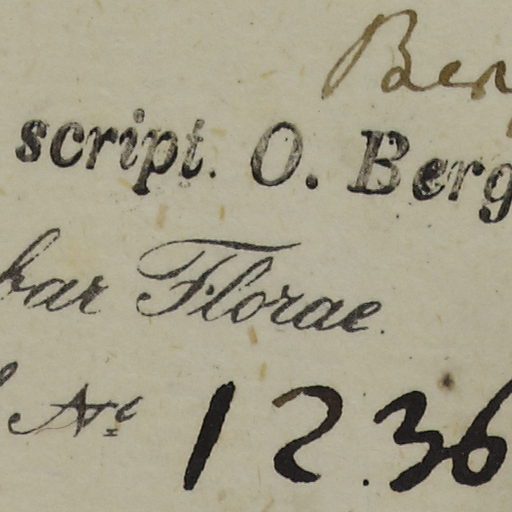 Ber
script. O. Berg
bar Florae
Nº 1236